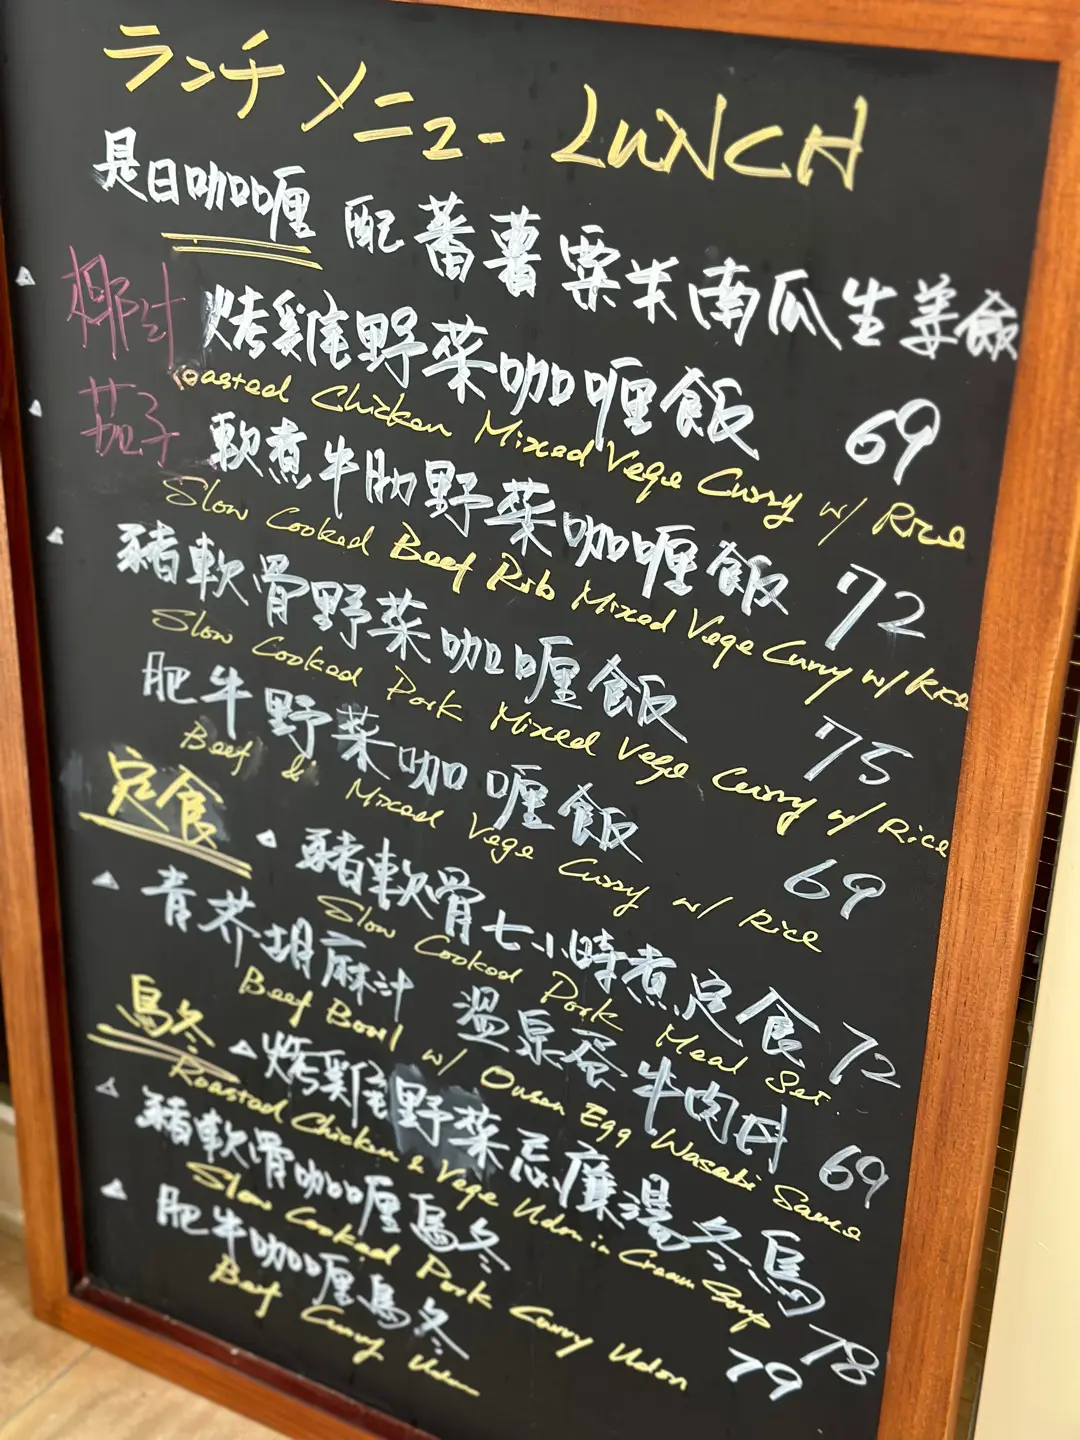 ランチメニュー LUNCH
是日咖喱 配蕃薯粟米南瓜生姜飯
椰汁
烤雞野菜咖喱飯 69
Roasted Chicken Mixed Vege Curry w/ Rice
茄子
軟煮牛肋野菜咖喱飯 72
Slow Cooked Beef Rib Mixed Vege Curry w/ Rice
豬軟骨野菜咖喱飯 75
Slow Cooked Pork Mixed Vege Curry w/ Rice
肥牛野菜咖喱飯 69
Beef & Mixed Vege Curry w/ Rice
定食
豬軟骨七小時煮定食 72
Slow Cooked Pork Meal Set
青芥胡麻汁 溫泉蛋牛肉丼 69
Beef Bowl w/ Onsen Egg Wasabi Same
烏冬
烤雞野菜忌廉湯冬烏 78
Roasted Chicken & Vege Udon in Cream Soup
豬軟骨咖喱烏冬 79
Slow Cooked Pork Curry Udon
肥牛咖喱烏冬
Beef Curry Udon